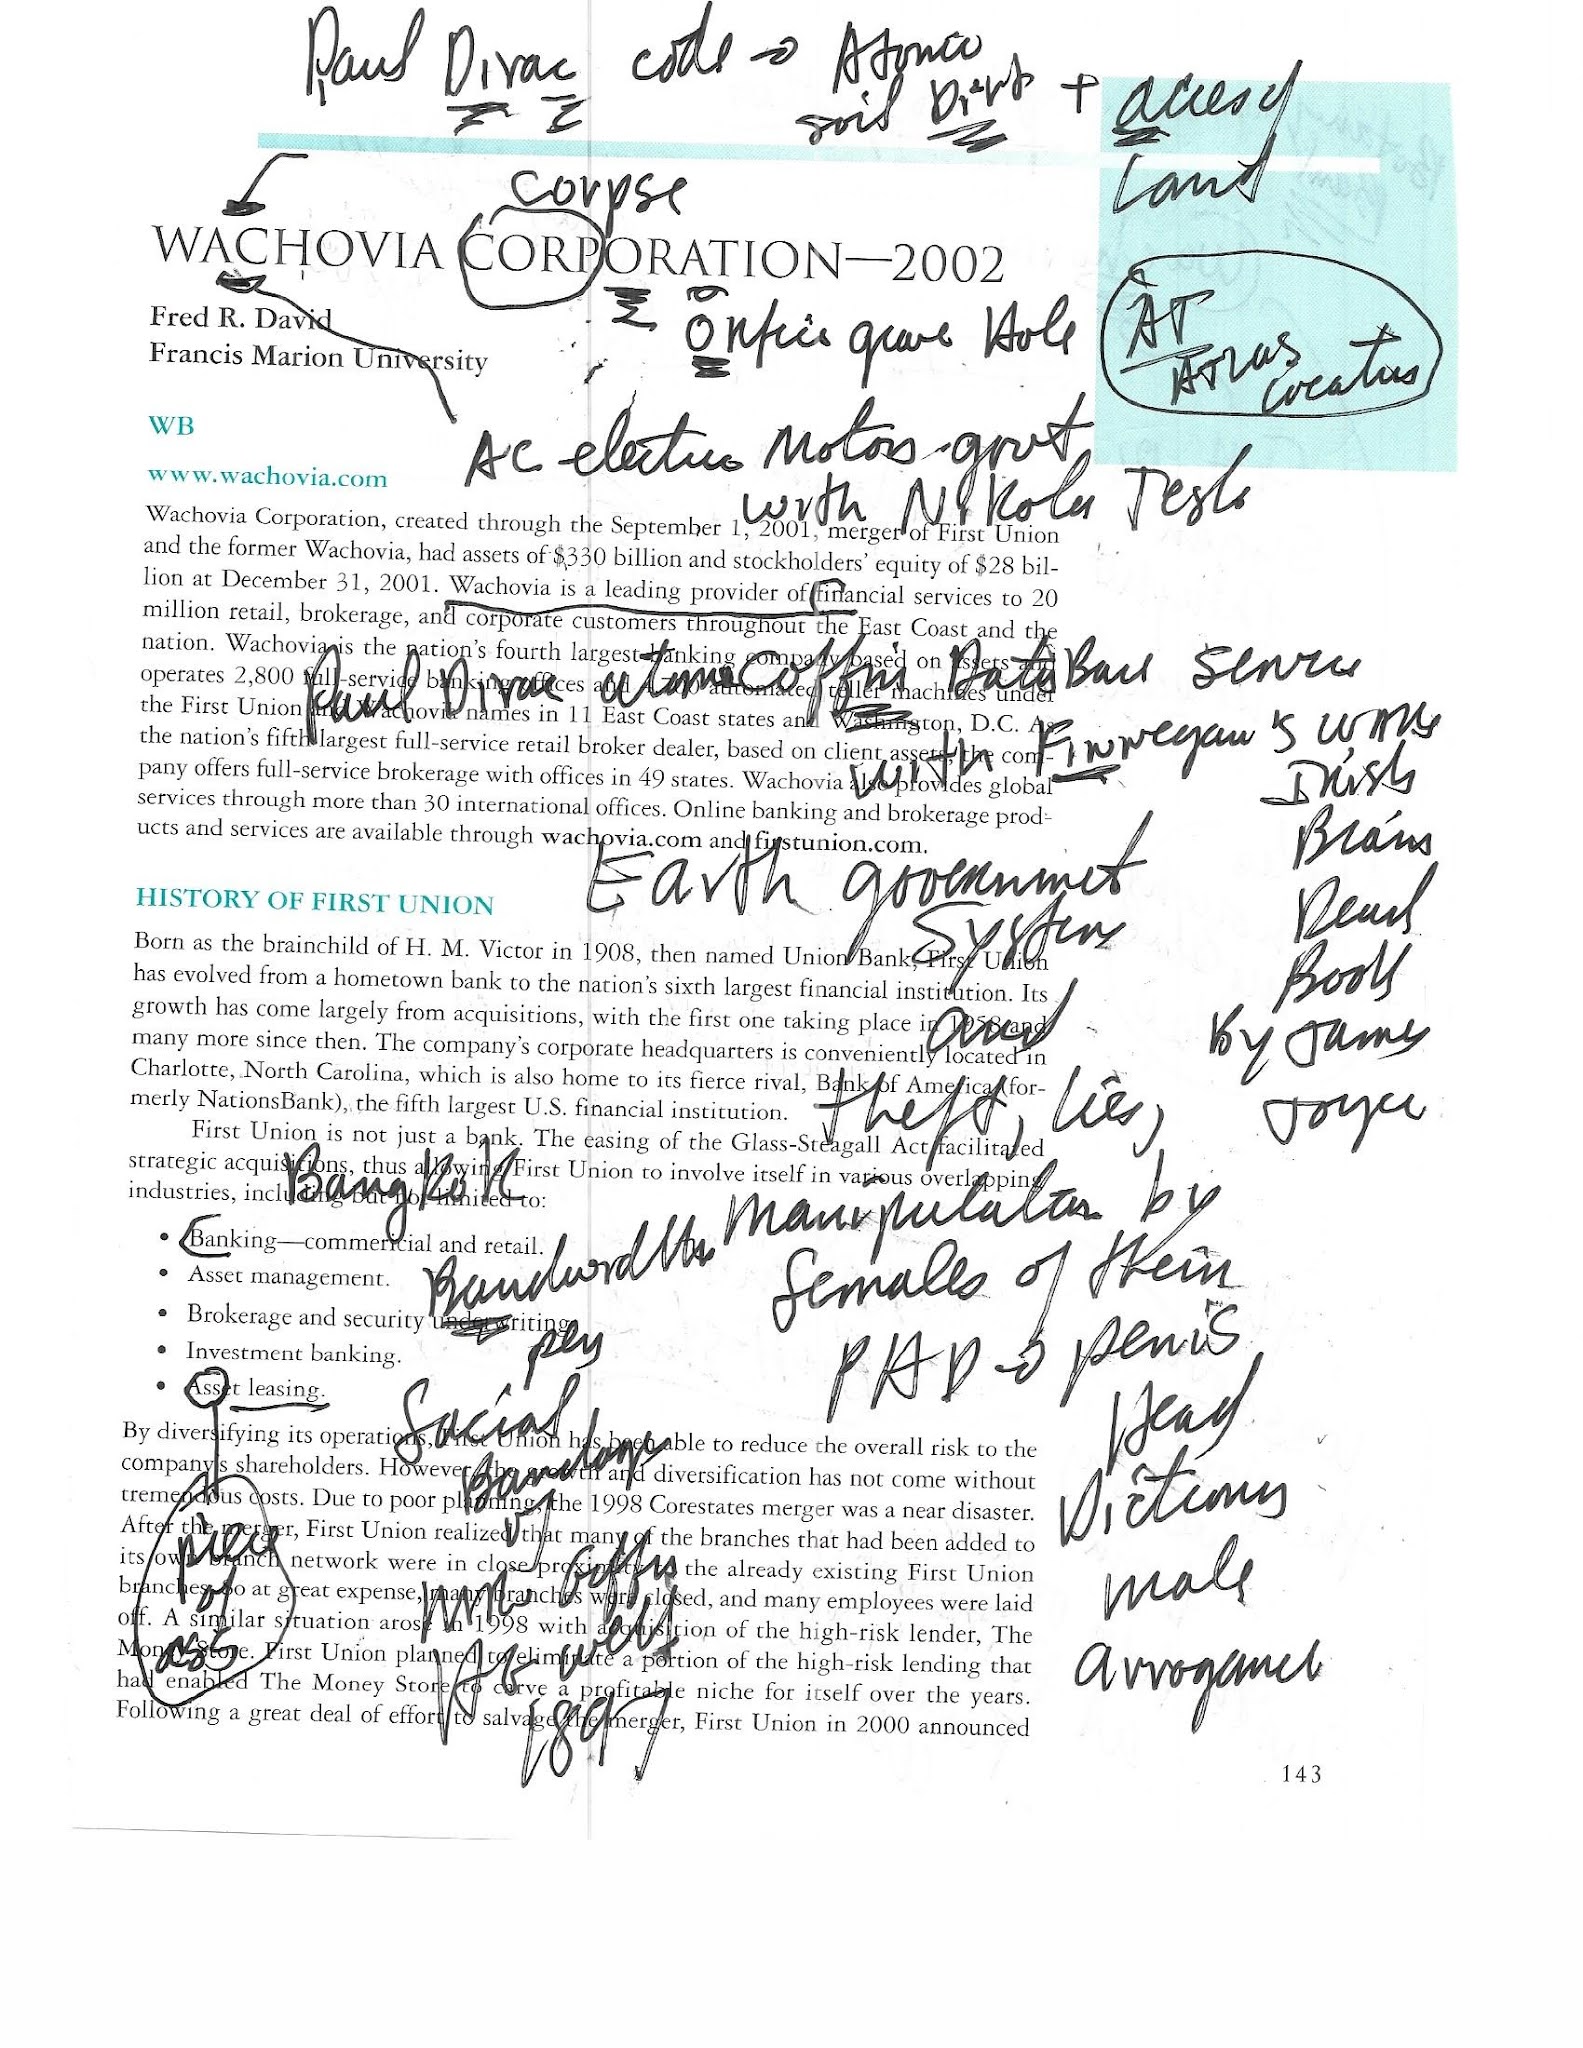 Paul Dirac code → Atomic
soil Dirt + access of
land
corpse
WACHOVIA CORPORATION—2002
Fred R. David
Francis Marion University
Orifice grave Hole
AT
Atlas
creatus
WB
AC electric Motors govt
www.wachovia.com
with Nikola Tesla
Wachovia Corporation, created through the September 1, 2001, merger of First Union
and the former Wachovia, had assets of $330 billion and stockholders' equity of $28 bil-
lion at December 31, 2001. Wachovia is a leading provider of financial services to 20
million retail, brokerage, and corporate customers throughout the East Coast and the
nation. Wachovia is the nation's fourth largest banking company based on assets and
operates 2,800 full-service banking offices and automated teller machines under
the First Union and Wachovia names in 11 East Coast states and Washington, D.C. As
the nation's fifth largest full-service retail broker dealer, based on client assets, the com-
pany offers full-service brokerage with offices in 49 states. Wachovia also provides global
services through more than 30 international offices. Online banking and brokerage prod-
ucts and services are available through wachovia.com and firstunion.com.
Paul Dirac atomic coffin DataBase service
with Finnegan's wake
Irish
Brain
Dead
Book
by James
Joyce
Earth government
System
and
theft, lies,
manipulation by
females of their
PHD → penis
Head
Dictionary
male
arrogance
HISTORY OF FIRST UNION
Born as the brainchild of H. M. Victor in 1908, then named Union Bank, First Union
has evolved from a hometown bank to the nation's sixth largest financial institution. Its
growth has come largely from acquisitions, with the first one taking place in 1958 and
many more since then. The company's corporate headquarters is conveniently located in
Charlotte, North Carolina, which is also home to its fierce rival, Bank of America (for-
merly NationsBank), the fifth largest U.S. financial institution.
First Union is not just a bank. The easing of the Glass-Steagall Act facilitated
strategic acquisitions, thus allowing First Union to involve itself in various overlapping
industries, including but not limited to:
BangKoK
• Banking—commericial and retail.
• Asset management.
• Brokerage and security underwriting.
• Investment banking.
• Asset leasing.
Bandwidth
pen
Social
Bandage
piece
of
ass
HG Well
1897
By diversifying its operations, First Union has been able to reduce the overall risk to the
company's shareholders. However, the growth and diversification has not come without
tremendous costs. Due to poor planning, the 1998 Corestates merger was a near disaster.
After the merger, First Union realized that many of the branches that had been added to
its own branch network were in close proximity to the already existing First Union
branches. So at great expense, many branches were closed, and many employees were laid
off. A similar situation arose in 1998 with acquisition of the high-risk lender, The
Money Store. First Union planned to eliminate a portion of the high-risk lending that
had enabled The Money Store to carve a profitable niche for itself over the years.
Following a great deal of effort to salvage the merger, First Union in 2000 announced
143